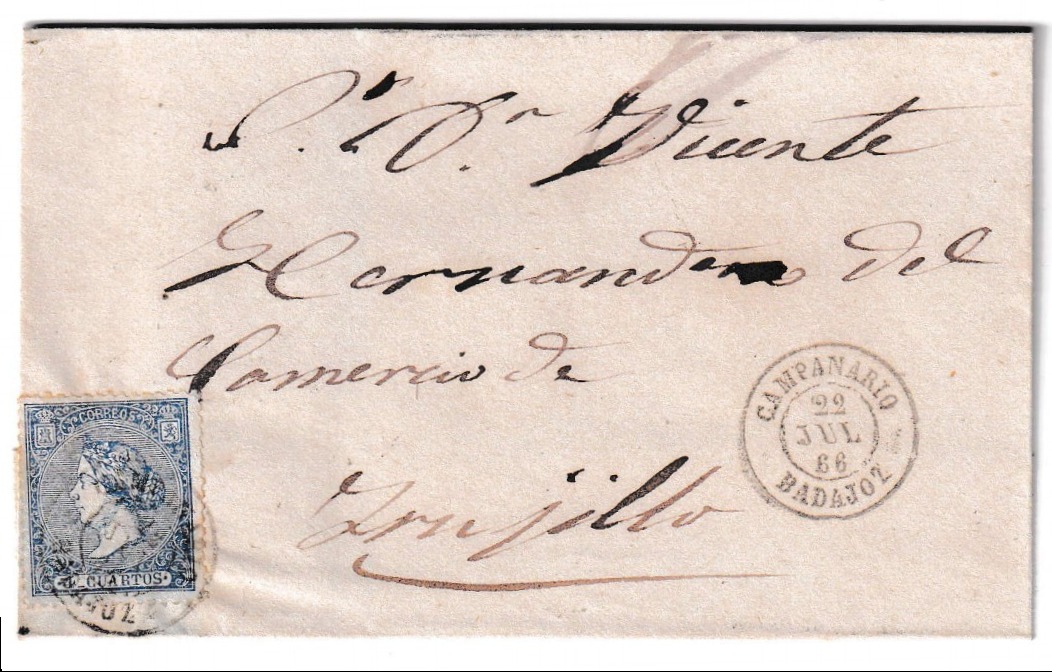 S.r D.n Vicente
Hernandez del
Comercio de
Trujillo
CAMPANARIO
22
JUL
66
BADAJOZ
CORREOS
4 CUARTOS